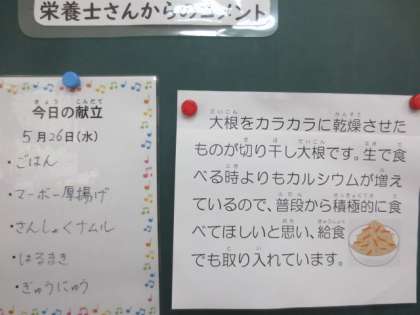 栄養士さんからのコメント
きょう こんだて
今日の献立
5月26日(水)
・ごはん
・マーボー厚揚げ
・さんしょくナムル
・はるまき
・ぎゅうにゅう
だいこん かんそう
大根をカラカラに乾燥させた
ものが切り干し大根です。生で食
べる時よりもカルシウムが増え
ているので、普段から積極的に食
べてほしいと思い、給食
でも取り入れています。